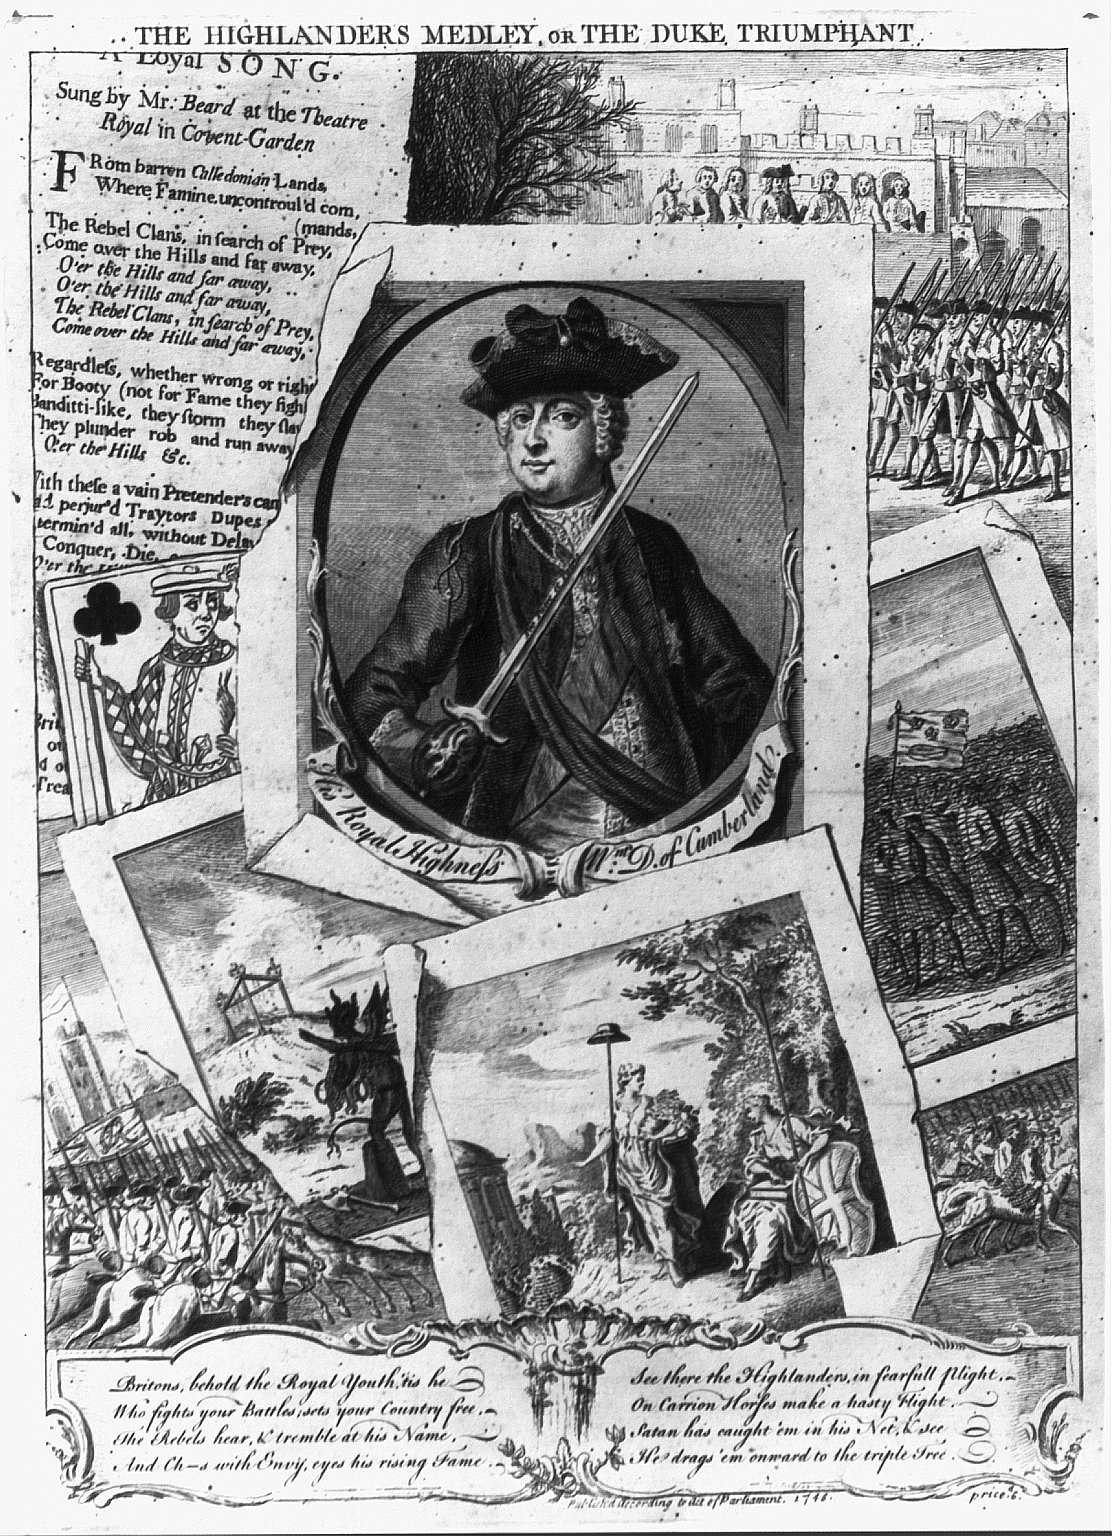 THE HIGHLANDERS MEDLEY, OR THE DUKE TRIUMPHANT
A Loyal SONG.
Sung by Mr. Beard at the Theatre
Royal in Covent-Garden
FRom barren Calledonian Lands,
Where Famine uncontroul'd com,
(mands,
The Rebel Clans, in ſearch of Prey,
Come over the Hills and far away,
O'er the Hills and far away,
O'er the Hills and far away,
The Rebel Clans, in ſearch of Prey,
Come over the Hills and far away,
Regardleſs, whether wrong or right
For Booty (not for Fame they figh
Banditti-like, they ſtorm they ſlay
They plunder rob and run away
O'er the Hills &c.
With theſe a vain Pretender's can
perjur'd Traytors Dupes
termin'd all, without Delay
Conquer, Die,
O'er the
Trea
His Royal Highneſs Wm. D. of Cumberland.
Britons, behold the Royal Youth, 'tis he
Who fights your Battles, sets your Country free.
The Rebels hear, & tremble at his Name,
And Ch—s with Envy, eyes his rising Fame
See there the Highlanders, in fearfull plight,
On Carrion Horſes make a hasty Flight.
Satan has caught 'em in his Net, & see
He drags 'em onward to the triple Tree.
Publiſhed according to Act of Parliament. 1746.
price. 6.